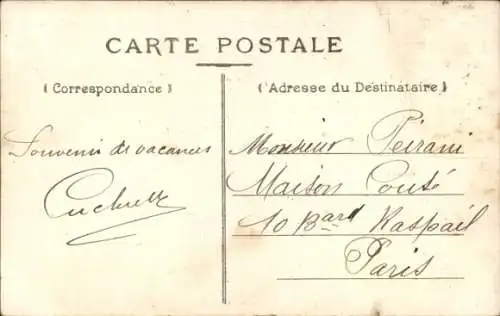 CARTE POSTALE
(Correspondance)
(Adresse du Destinataire)
Souvenir de vacances
Monsieur Peirani
Maison Couté
10 Bard Raspail
Paris